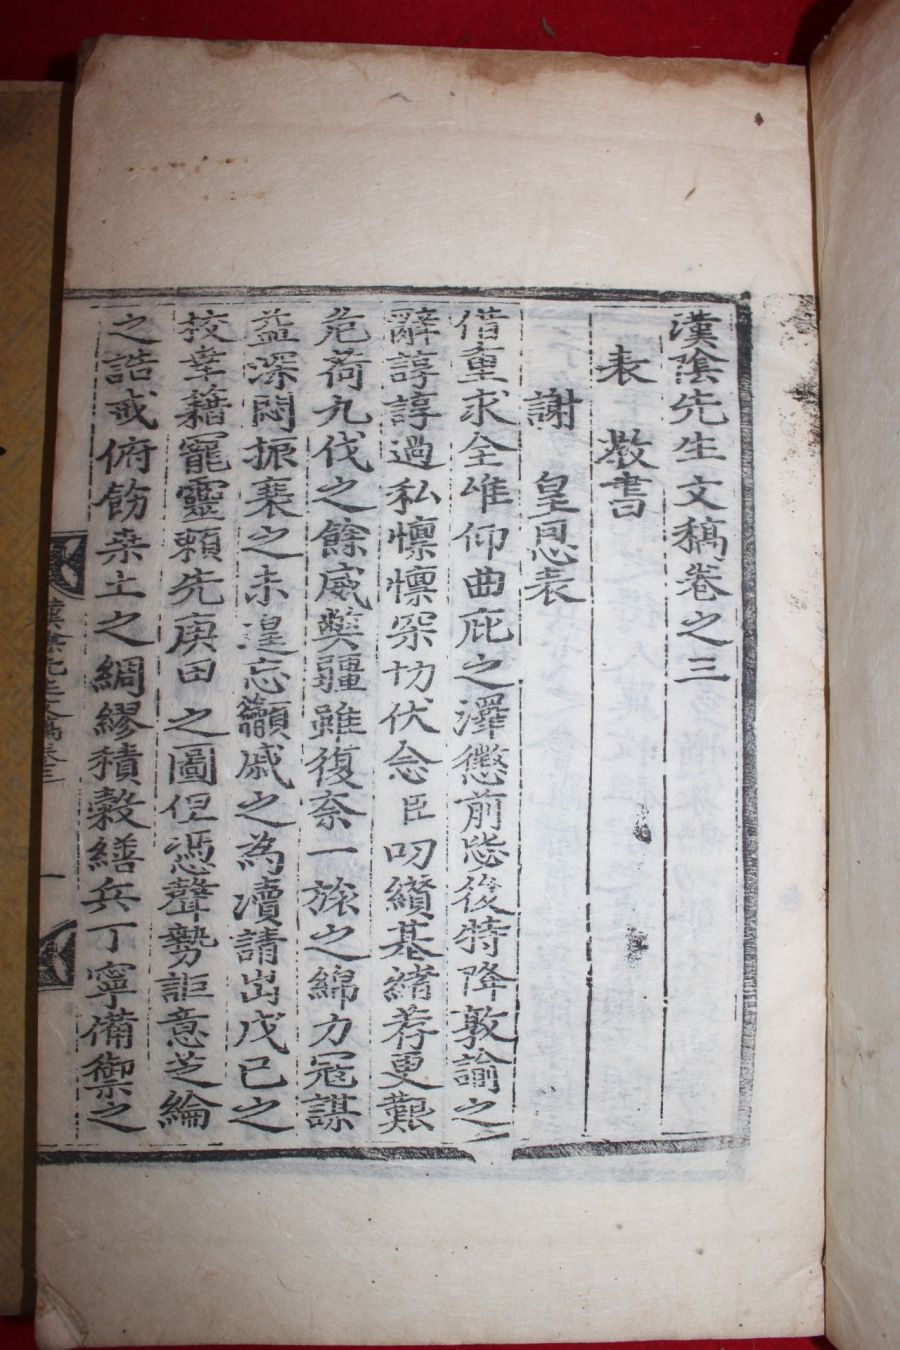 漢陰先生文稿卷之三
表 教書
謝 皇恩表
借重求全唯仰曲庇之澤懲前毖後特降敦諭之
辭諄諄過私懍懍深切伏念臣叨纘基緖荐更艱
危荷九伐之餘威藥疆雖復奈一旅之綿力寇謀
益深悶振裘之未遑忘籲戚之爲瀆請出戊已之
校幸藉寵靈賴先庚田 之圖但憑聲勢詎意芝綸
之誥戒俯飭桑土之綢繆積穀繕兵丁寧備禦之
漢陰先生文稿卷三 一